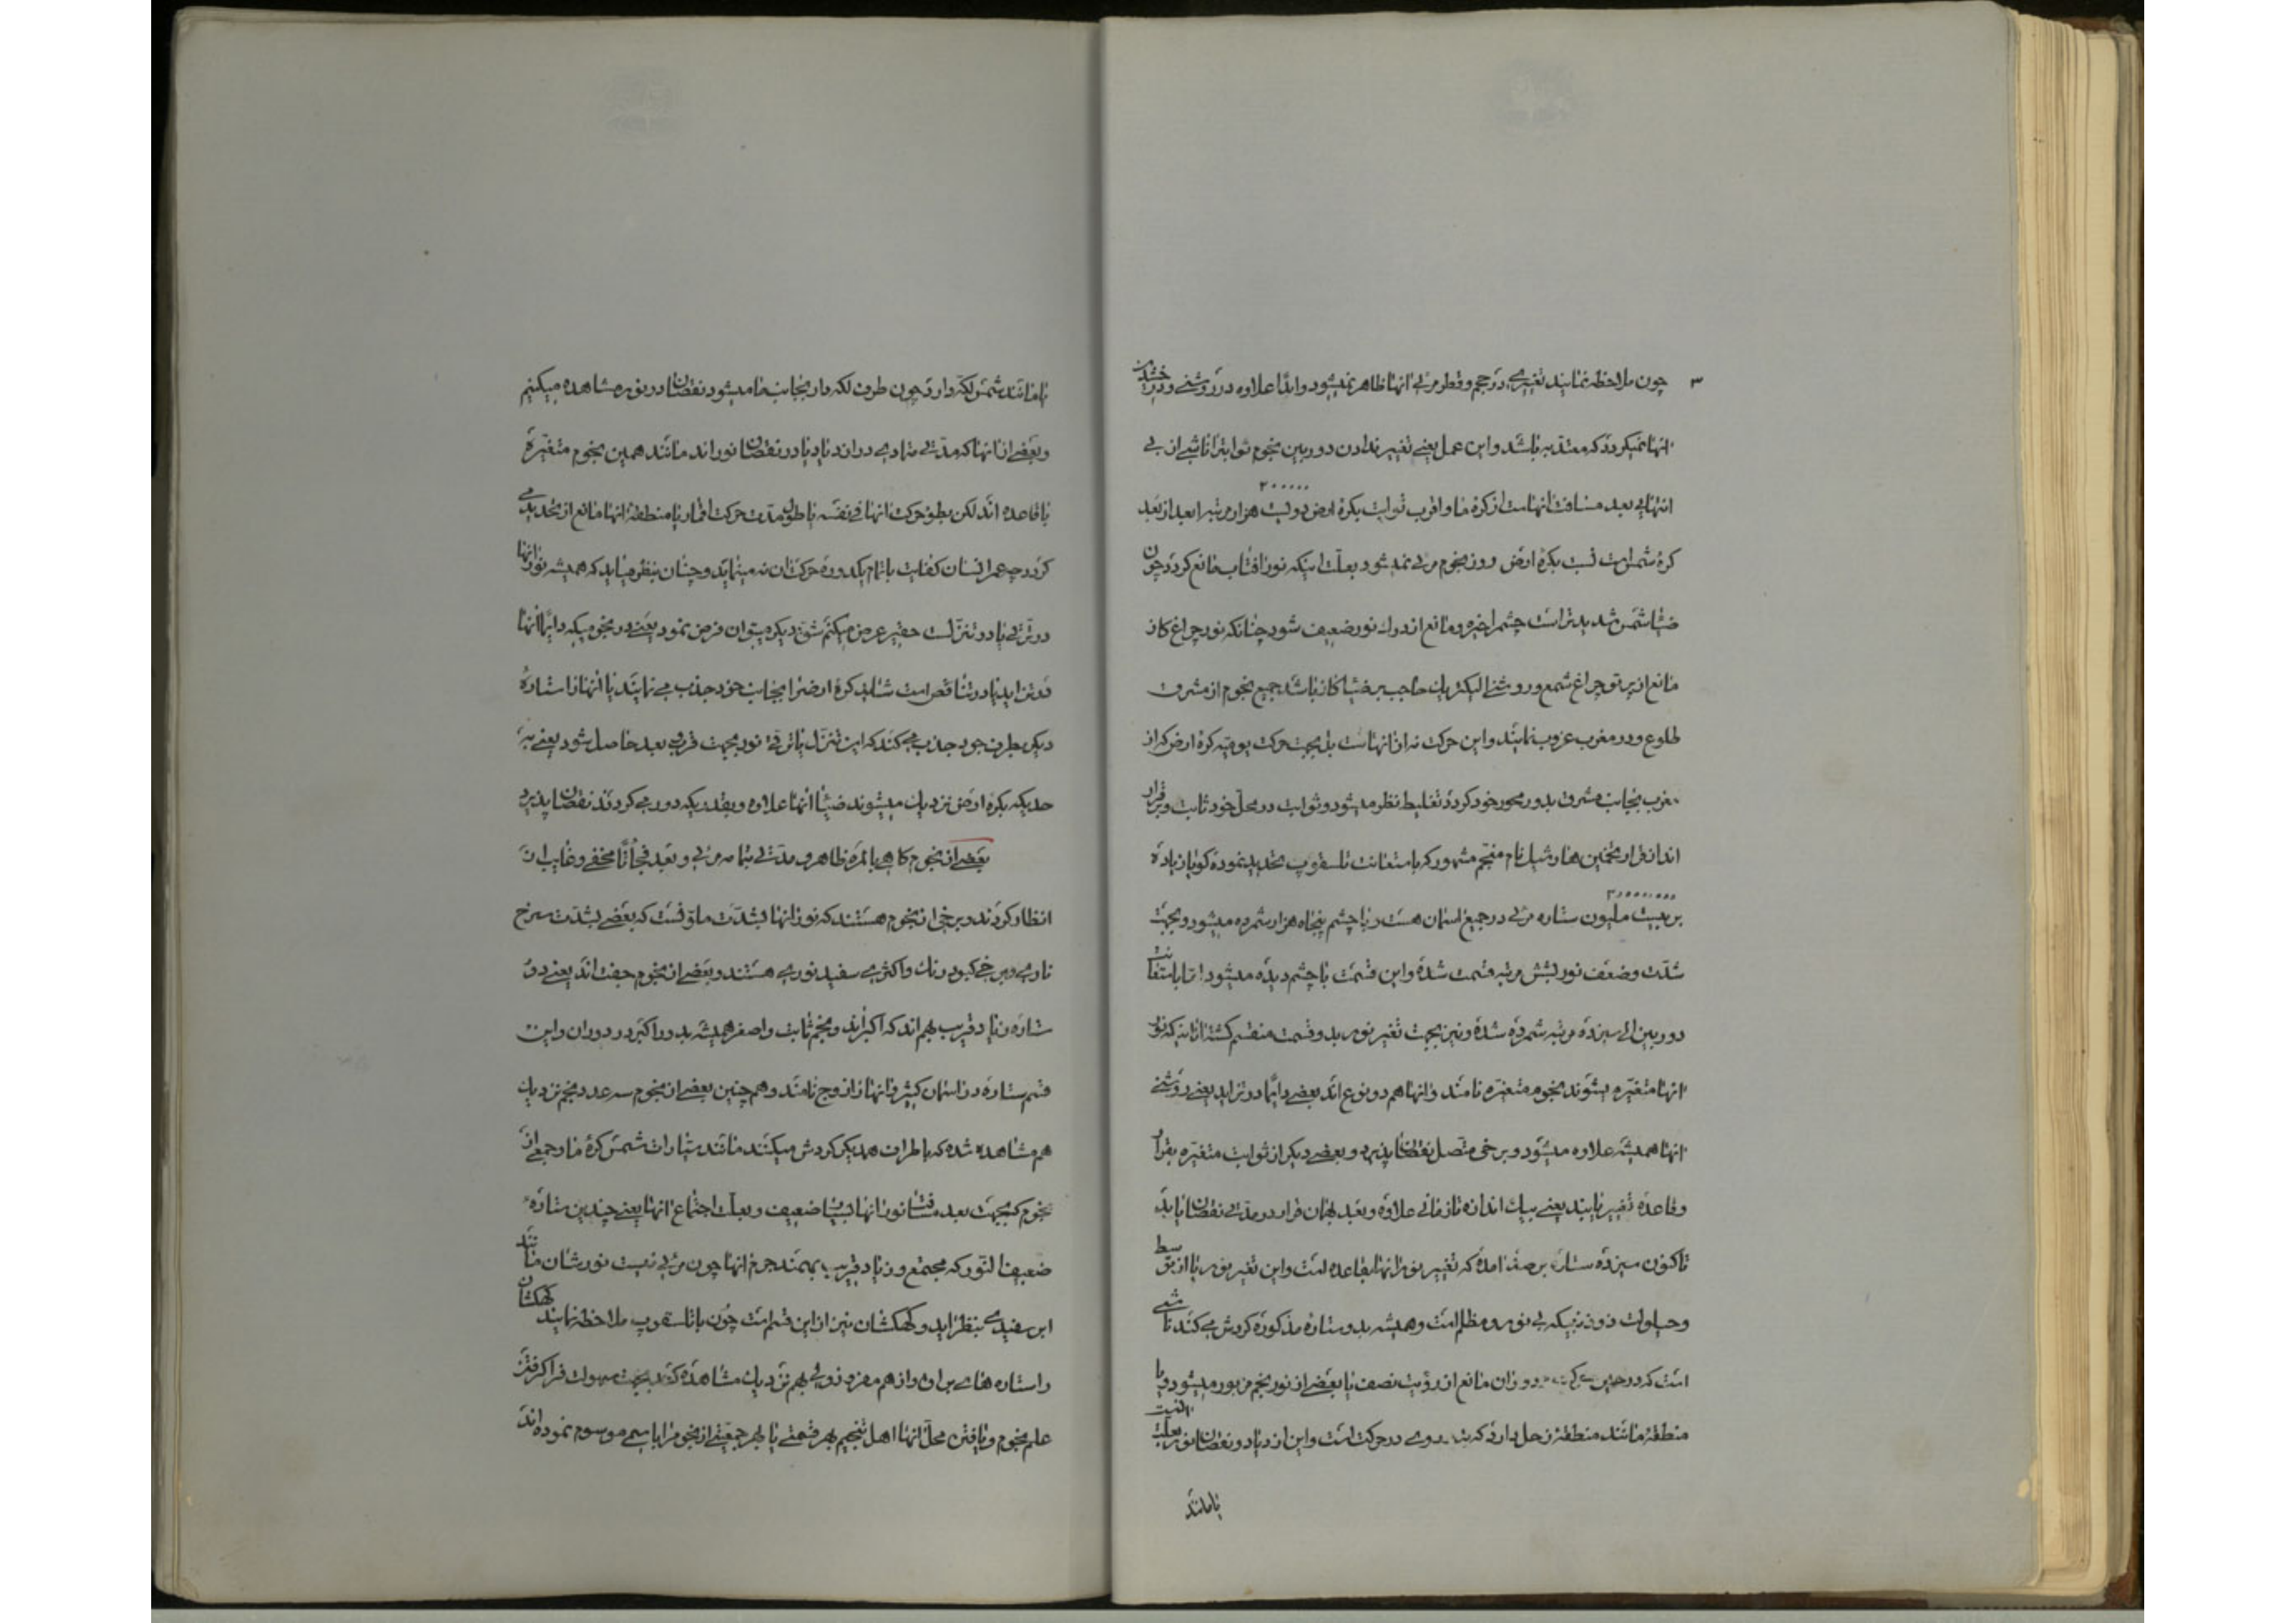 ۳
چون ملاحظه نمایند تغییری در حجم و قطر مرئی انها ظاهر نمیشود و ابدًا علاوه در روشنی و درخشیدن
انها نمیکردد که معتد به باشد و این عمل یعنی تغییر ندادن دوربین نجوم ثوابترا ناشی از بی
۲۰۰۰۰۰
انتهایی بعد مسافت انهاست از کرهٔ ما و اقرب ثوابت بکرهٔ ارض دویست هزار مرتبه ابعد از بعد
کرهٔ شمس است نسبت بکرهٔ ارض و روز نجوم مرئی نمیشود بعلت اینکه نور افتاب مانع کردد چون
ضیاء شمس شدیدتر است چشم را خیره و مانع از دراک نور ضعیف شود چنانکه نور چراغ کاز
مانع از پرتو چراغ شمع و روشنی الیکتریک حاجب بر ضیاء کاز باشد جمیع نجوم از مشرق
طلوع و در مغرب غروب نمایند و این حرکت نه از انهاست بل بجهت حرکت یومیه کرهٔ ارض که از
مغرب بجانب مشرق بدور محور خود کردد تغلیط نظر میشود و ثوابت در محلّ خود ثابت و برقرار
اند از قرار تخمین هارشیل نام منجّم مشهور که باستعانت تلسقوپ تحدید نموده کویا زیاده
۲۰۰۰۰۰۰۰
بر بیست ملیون ستاره مرئی در جمیع اسمان هست و با چشم پنجاه هزار شمرده میشود و بجهت
شدّت و ضعف نور بشش مرتبه قسمت شده و این قسمت با چشم دیده میشود امّا باستعانت
دوربین الی سیزده مرتبه شمرده شده و نیز بجهت تغییر نور بدو قسمت منقسم کشته انانیکه نور
انها متغیّره بشوند نجوم متغیّره نامند و انها هم دو نوع اند بعضی دایمًا در تزاید یعنی روشنی
انها همیشه علاوه میشود و برخی متّصل نقصان پذیرد و بعضی دیکر از ثوابت متغیّره بقرار
و قاعده تغییر یابند یعنی بیک اندازه تا زمانی علاوه و بعد بهمان قرار در مدّتی نقصان یابد
تاکنون سیزده ستاره برصد امده که تغییر نور انها بقاعده است و این تغییر نور یا از توسط
و حیلولت ذوذنبیکه بی نور و مظلم است و همیشه بدور ستاره مذکوره کردش می کند ناشی
است که در حین دوران مانع از رؤیت نصف یا بعضی از نور نجم مزبور میشود و یا
منطقهٔ مانند منطقهٔ زحل دارد که بدوری در حرکت است و این ازدیاد و نقصان نور بعلت
یا مانند
یا مانند شمس لکّه دارد چون طرف لکه دار بجانب ما میشود نقصان در نور مشاهده میکنیم
و بعضی از انها که مدّتی متمادی در ازدیاد یا در نقصان نور اند مانند همین نجوم متغیّرهٔ
با قاعده اند لکن بطوء حرکت انها فی نفسه یا طول مدت حرکت اقمار یا منطقهٔ انها مانع از تحدید می
کردد چه عمر انسان کفایت باتمام یکدوره حرکت ان نه مینماید و چنان بنظر میاید که همیشه نور انها
در ترقی یا در تنزّل است حقیر عرض میکنم شقّ دیکر میتوان فرض نمود یعنی در نجومیکه دایمًا انها
در تزاید یا در تناقص است شاید کرهٔ ارض را بجانب خود جذب می نمایند یا انها را ستارهٔ
دیکر بطرف خود جذب می کند که این تنزّل یا ترقّی نور بجهت قرب و بعد حاصل شود یعنی بهر
حدیکه بکرهٔ ارض نزدیک میشوند ضیاء انها علاوه و بقدریکه دور می کردند نقصان پذیرد
بعضی از نجوم کاهی بالمرّه ظاهر و مدّتی بما مرئی و بعد فجأتًا مخفی و غایب از
انظار کردند و برخی از نجوم هستند که نور انها بشدّت ملوّنست که بعضی بشدّت سرخ
ناری و برخی کبود رنک و اکثری سفید نوری هستند و بعضی از نجوم جفت اند یعنی دو
ستاره زیاد قریب بهم اند که اکبر اند و نجم ثابت و اصغر همیشه بدور اکبر در دوران و این
قسم ستاره در اسمان کثیر و انها را ازدوج نامند و همچنین بعضی از نجوم سه عدد نجم نزدیک
هم مشاهده شده که باطراف همدیکر کردش میکنند مانند سیّارات شمس کرهٔ ما و جمعی از
نجوم که بجهت بعد مسافت نور انها بسیار ضعیف و بعلت اجتماع انها یعنی چندین ستارهٔ
ضعیف النّور که مجتمع و زیاد قریب بهمند جرم انها چون مرئی نیست نورشان مانند
ابر سفیدی بنظر اید و کهکشان نیز از این قسم است چون با تلسقوپ ملاحظه نمایند کهکشان
را ستاره های بر ان و از هم مفرد ولی بهم نزدیک مشاهده کند بجهت سهولت فرا کرفتن
علم نجوم و یافتن محلّ انها اهل تنجیم بهر قسمتی یا بهر جمعیّتی از نجوم را باسمی موسوم نموده اند